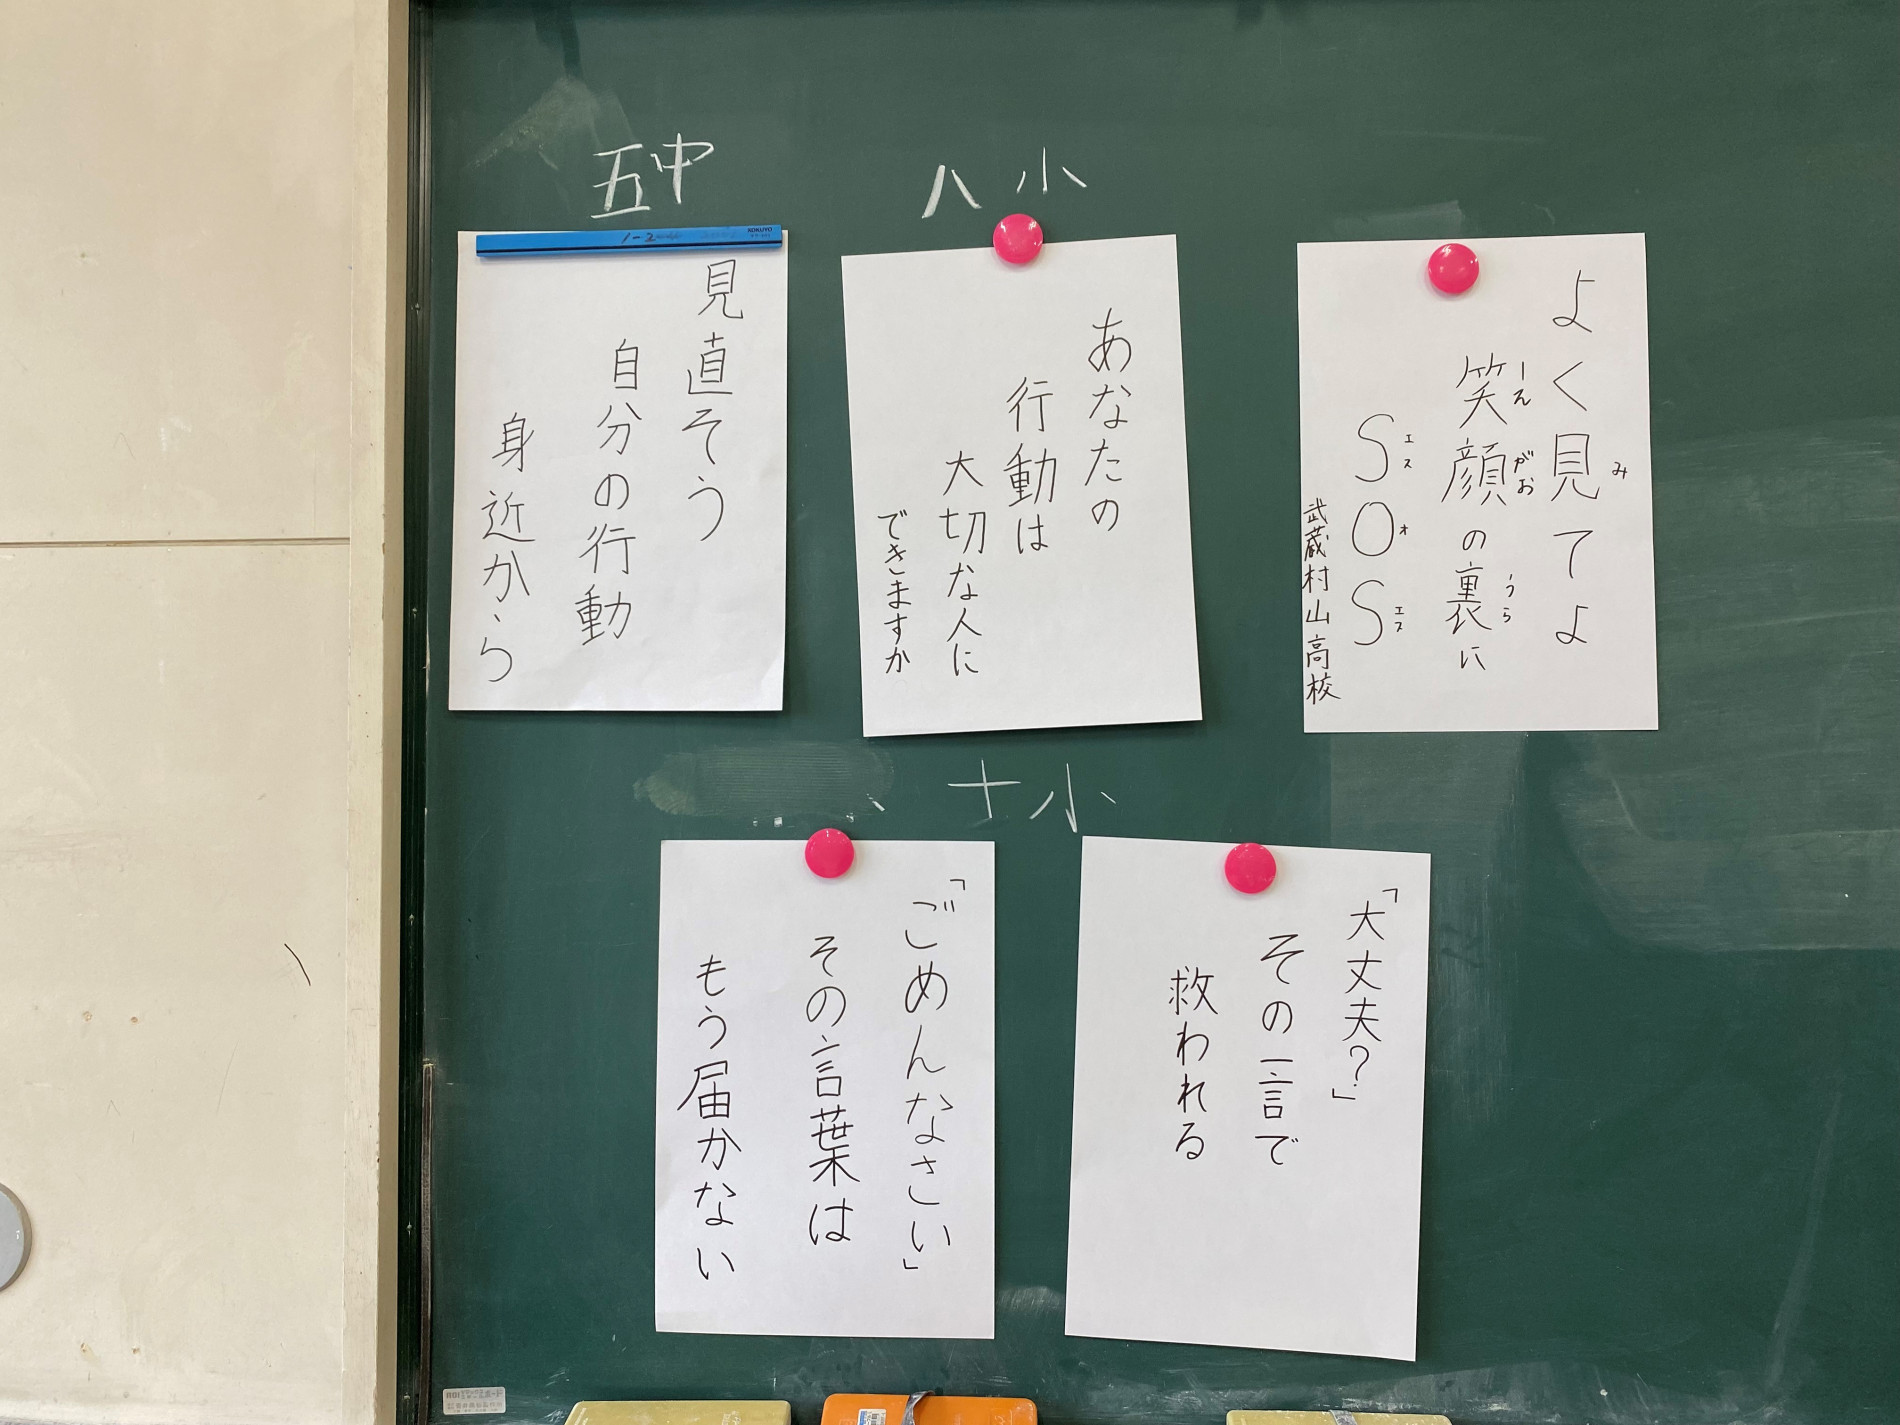 五中
1-2
KOKUYO
見直そう
自分の行動
身近から
八小
あなたの
行動は
大切な人に
できますか
よく見てよ
み
笑顔の裏に
えがお
うら
SOS
エス
オ
エス
武蔵村山高校
十小
「ごめんなさい」
その言葉は
もう届かない
「大丈夫?」
その一言で
救われる